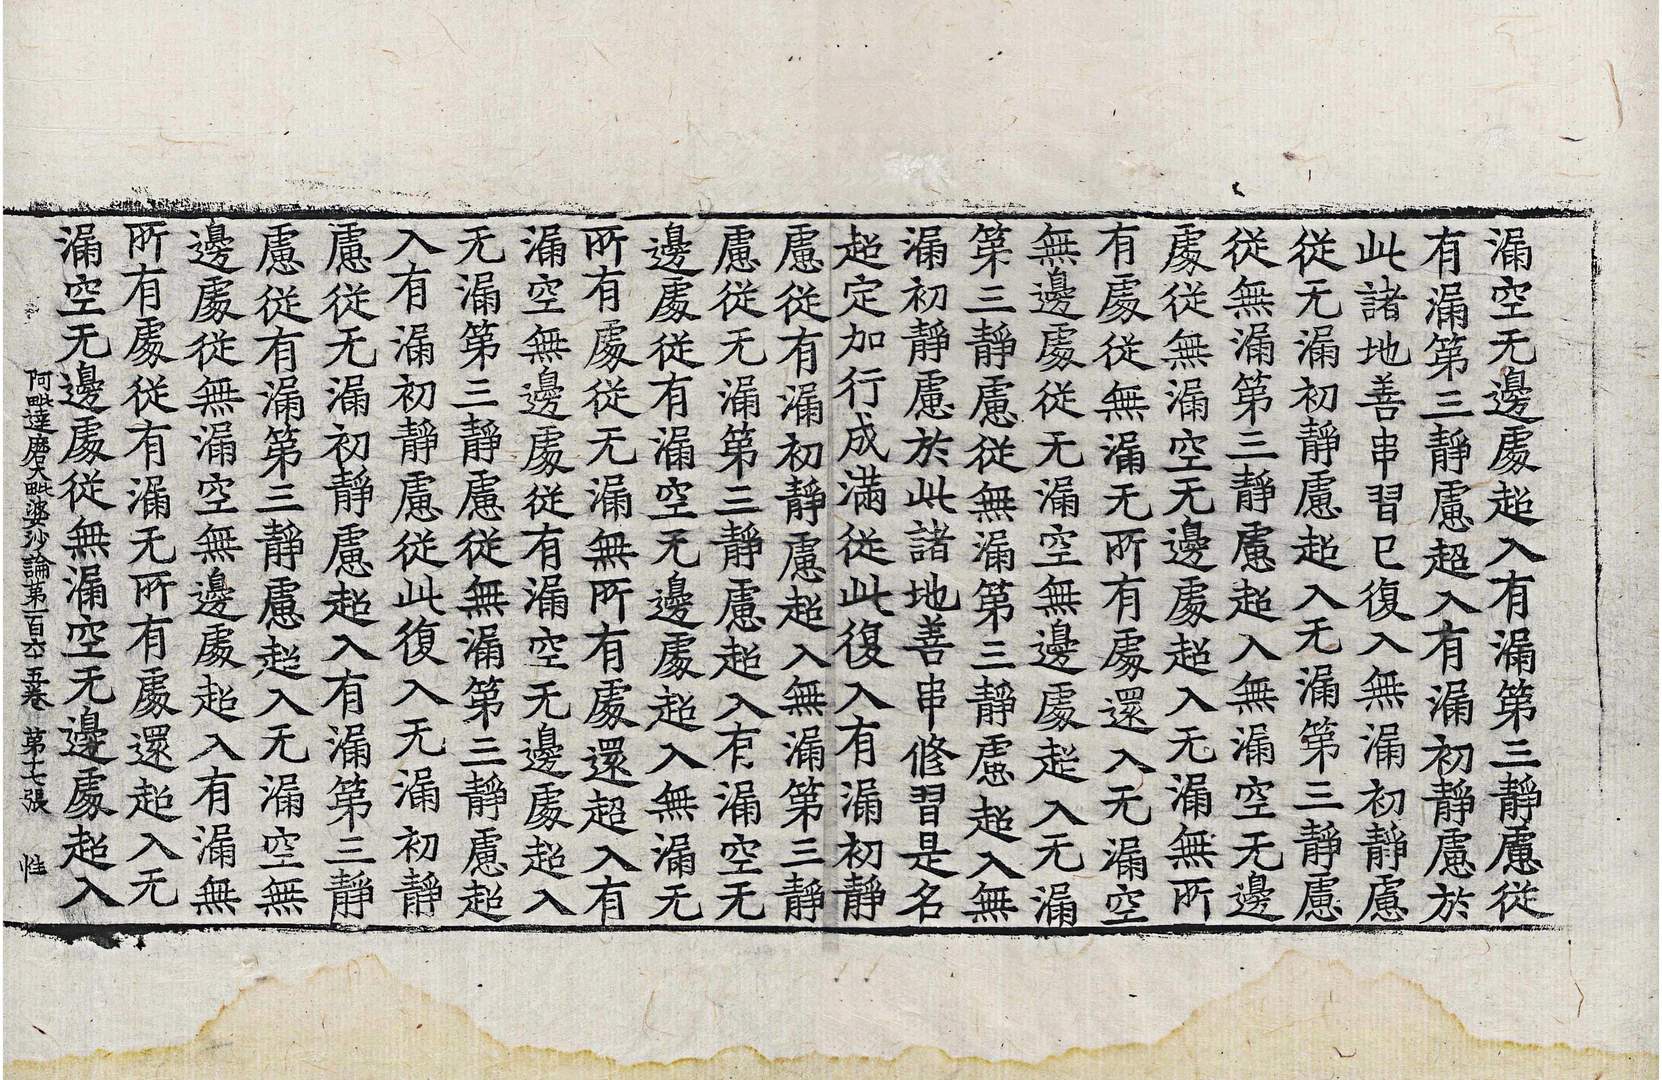 漏空无邊處超入有漏第三靜慮從
有漏第三靜慮超入有漏初靜慮於
此諸地善串習已復入無漏初靜慮
從无漏初靜慮超入无漏第三靜慮
從無漏第三靜慮超入無漏空无邊
處從無漏空无邊處超入无漏無所
有處從無漏无所有處還入无漏空
無邊處從无漏空無邊處超入无漏
第三靜慮從無漏第三靜慮超入無
漏初靜慮於此諸地善串修習是名
超定加行成滿從此復入有漏初靜
慮從有漏初靜慮超入無漏第三靜
慮從无漏第三靜慮超入有漏空无
邊處從有漏空无邊處超入無漏无
所有處從无漏無所有處還超入有
漏空無邊處從有漏空无邊處超入
无漏第三靜慮從無漏第三靜慮超
入有漏初靜慮從此復入无漏初靜
慮從无漏初靜慮超入有漏第三靜
慮從有漏第三靜慮超入无漏空無
邊處從無漏空無邊處超入有漏無
所有處從有漏无所有處還超入无
漏空无邊處從無漏空无邊處超入
阿毗達磨大毗婆沙論第一百六十五卷 第十七張 性